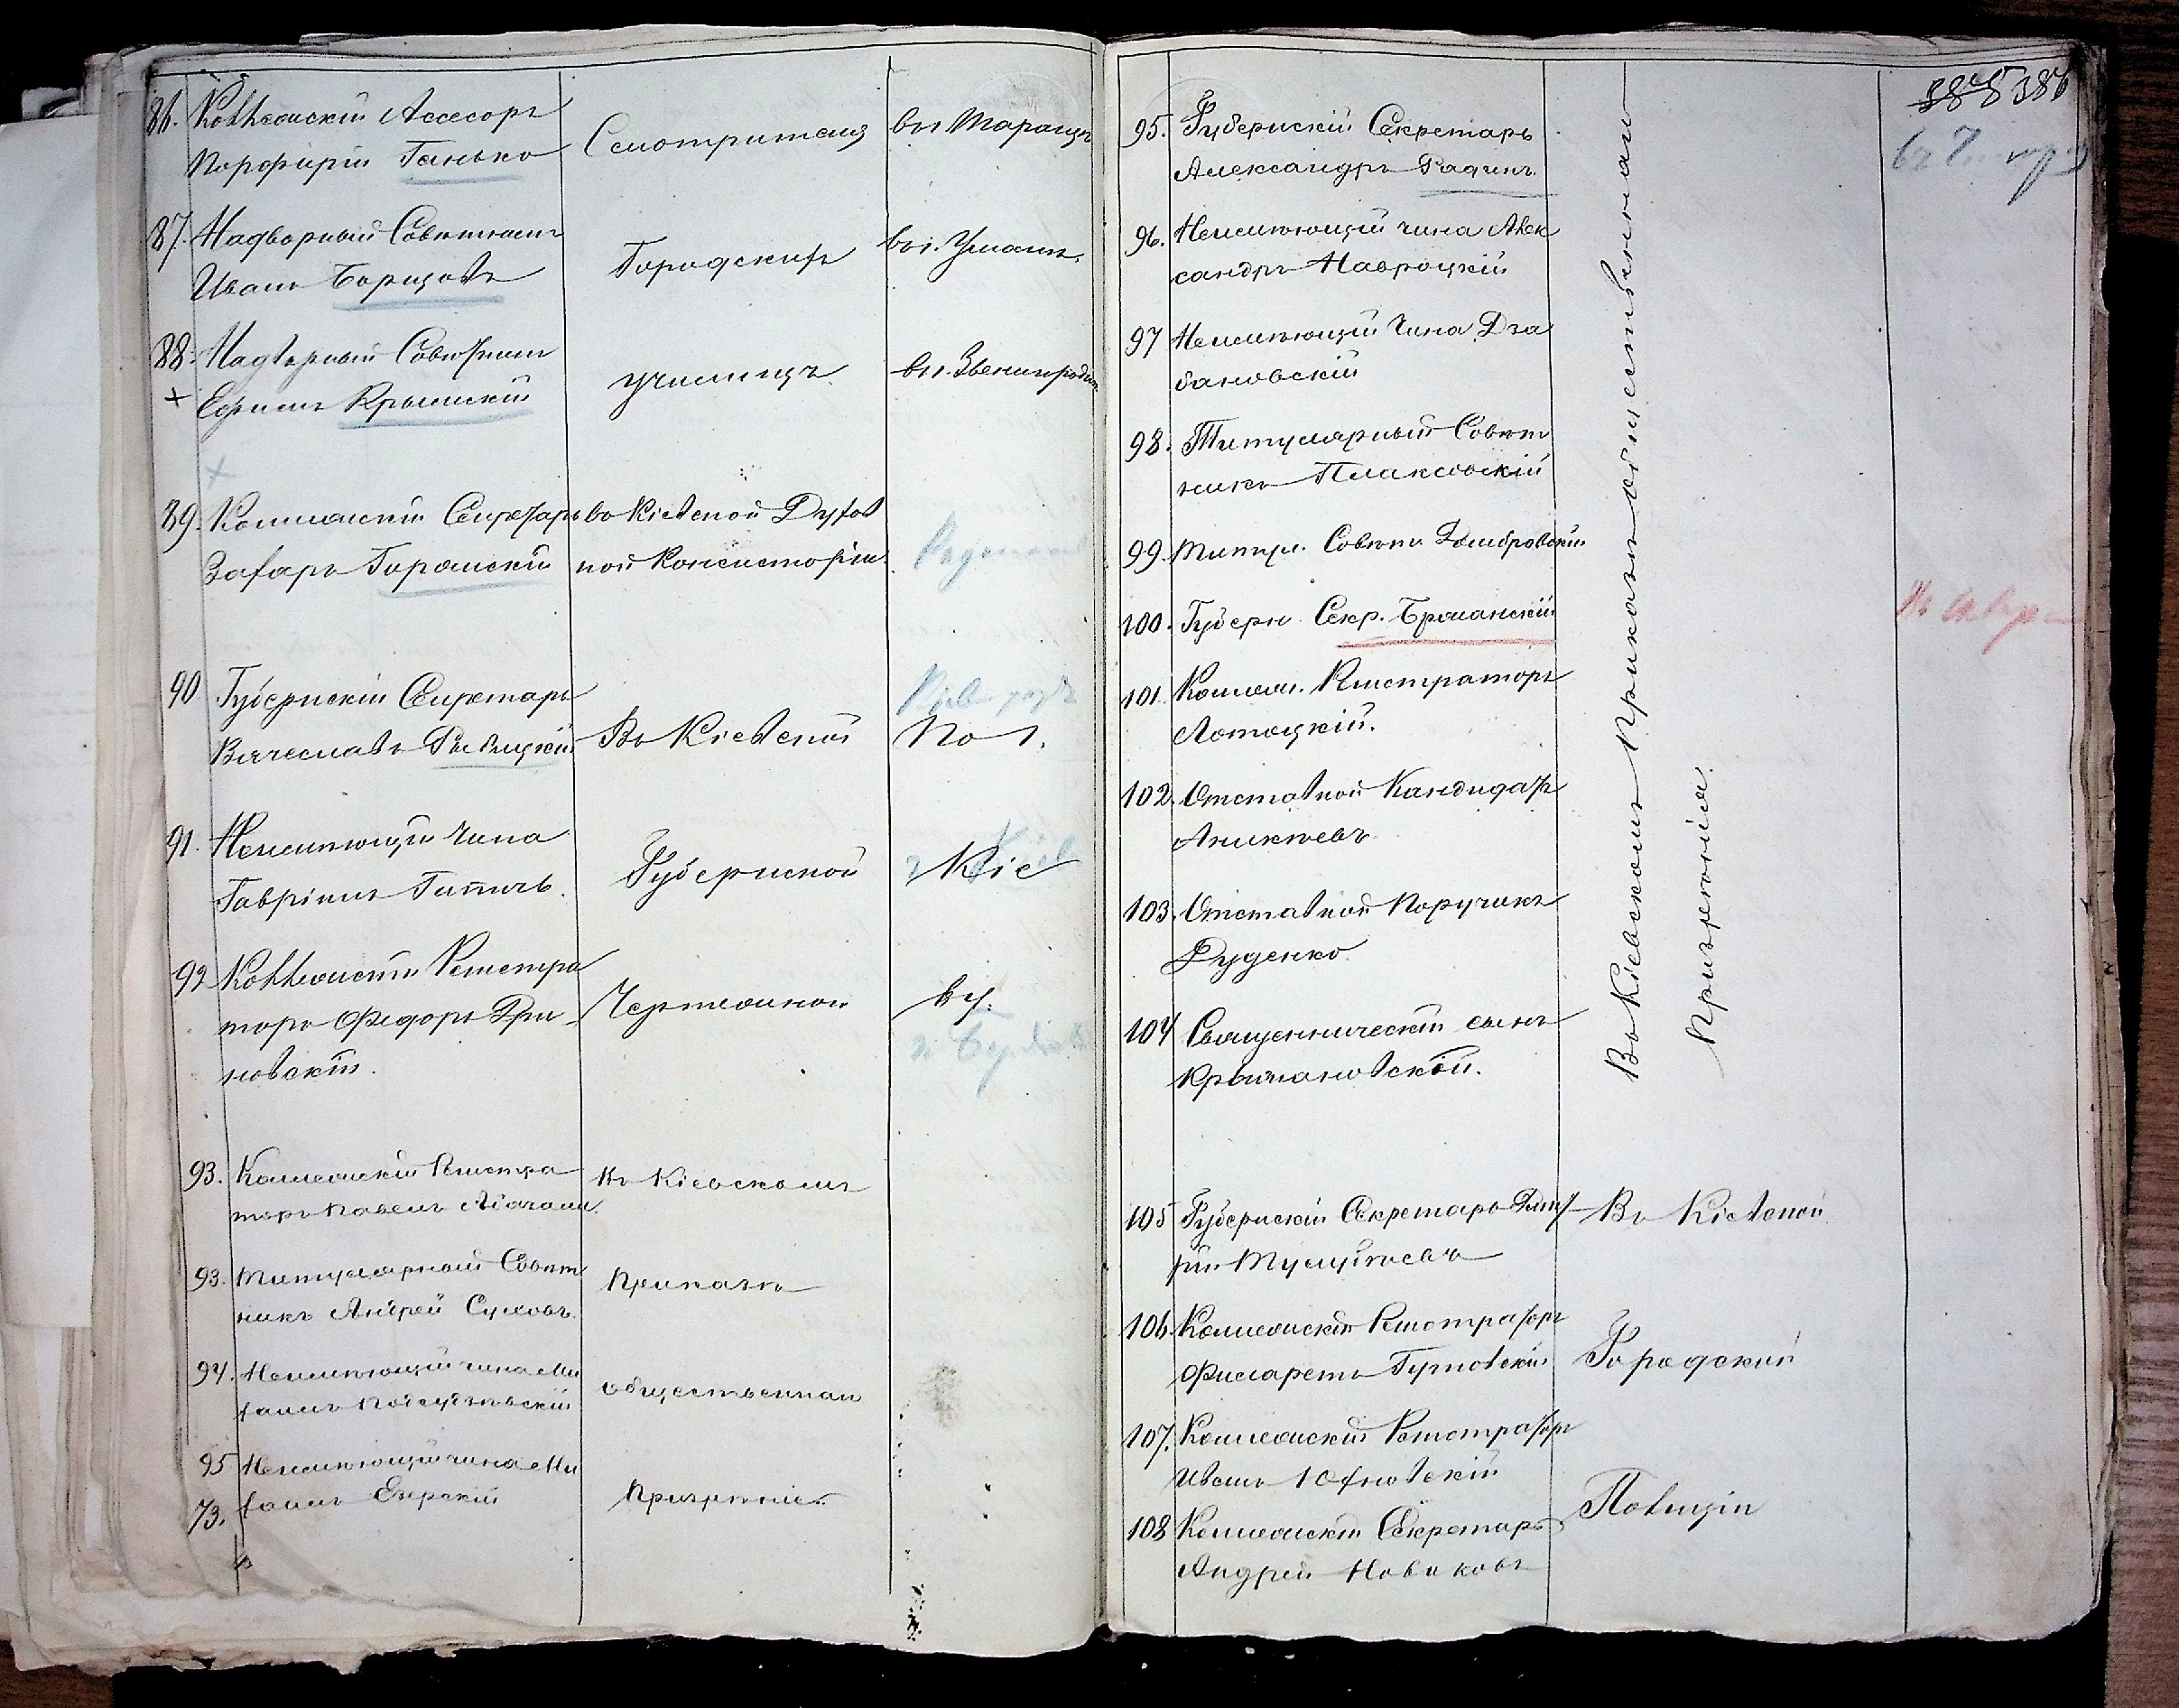 86. Коллежскій Ассесоръ
Порфирій Ганько
Смотритель
въ г. Таращѣ
87. Надворный Совѣтникъ
Иванъ Борщовъ
Городскихъ
въ г. Умани.
88. Надворный Совѣтникъ
+ Ефимъ Крымскій
училищъ
въ г. Звенигородкѣ
+
89. Коллежскій Секретарь
Захаръ Горанскій
въ Кіевской Духов
ной Консисторіи.
90 Губернскій Секретарь
Вячеславъ Рыбицкій
Въ Кіевской
По 1.
91. Неимѣющій чина
Гавріилъ
Губернской
92 Коллежскій Регистра
торъ Федоръ Гри-
новскій.
Чертежной
93. Коллежскій Регистра
торъ Павелъ
Въ Кіевскомъ
93. Титулярный Совѣт
никъ Андрей Сумовъ.
Приказѣ
94. Неимѣющій чина Ми
хаилъ
общественнаго
95 Неимѣющій чина Ми
хаилъ
73.
Призрѣнія.
385 386
95. Губернскій Секретарь
Александръ Радинъ.
96. Неимѣющій чина Алек
сандръ Навроцкій
97 Неимѣющій чина Дза
бановскій
98. Титулярный Совѣт
никъ Плаксовскій
99. Титул. Совѣтн. Домбровскій
100. Губерн. Секр.
101. Коллеж. Регистраторъ
Лотоцкій.
102. Отставной Кандидатъ
Аникѣевъ
103. Отставной Поручикъ
Руденко.
104 Священническій сынъ
Крыжановскій.
Въ Кіевскомъ Приказѣ общественнаго
Призрѣнія.
105 Губернскій Секретарь Дмит-
рій
Въ Кіевской
106 Коллежскій Регистраторъ
Филаретъ Гутовскій
Городской
107. Коллежскій Регистраторъ
Иванъ Юхновскій
108 Коллежскій Секретарь
Андрей Новиковъ
Полиціи